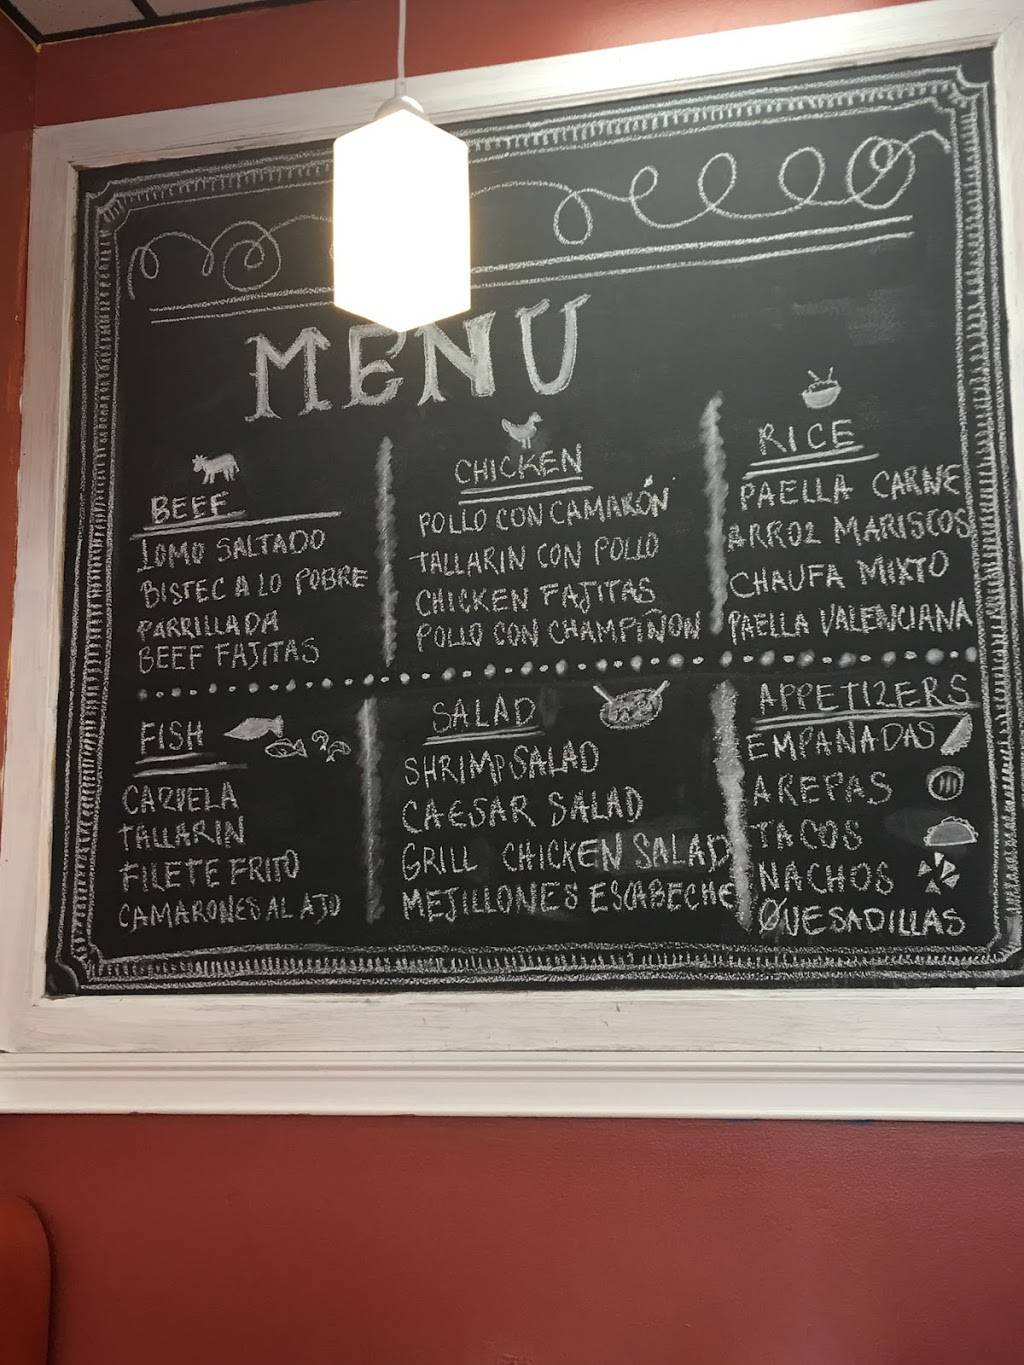 MENU
BEEF
LOMO SALTADO
BISTEC A LO POBRE
PARRILLADA
BEEF FAJITAS
CHICKEN
POLLO CON CAMARÓN
TALLARIN CON POLLO
CHICKEN FAJITAS
POLLO CON CHAMPIÑON
RICE
PAELLA CARNE
ARROZ MARISCOS
CHAUFA MIXTO
PAELLA VALENCIANA
FISH
CAZUELA
TALLARIN
FILETE FRITO
CAMARONES AL AJO
SALAD
SHRIMP SALAD
CAESAR SALAD
GRILL CHICKEN SALAD
MEJILLONES ESCABECHE
APPETIZERS
EMPAÑADAS
AREPAS
TACOS
NACHOS
QUESADILLAS